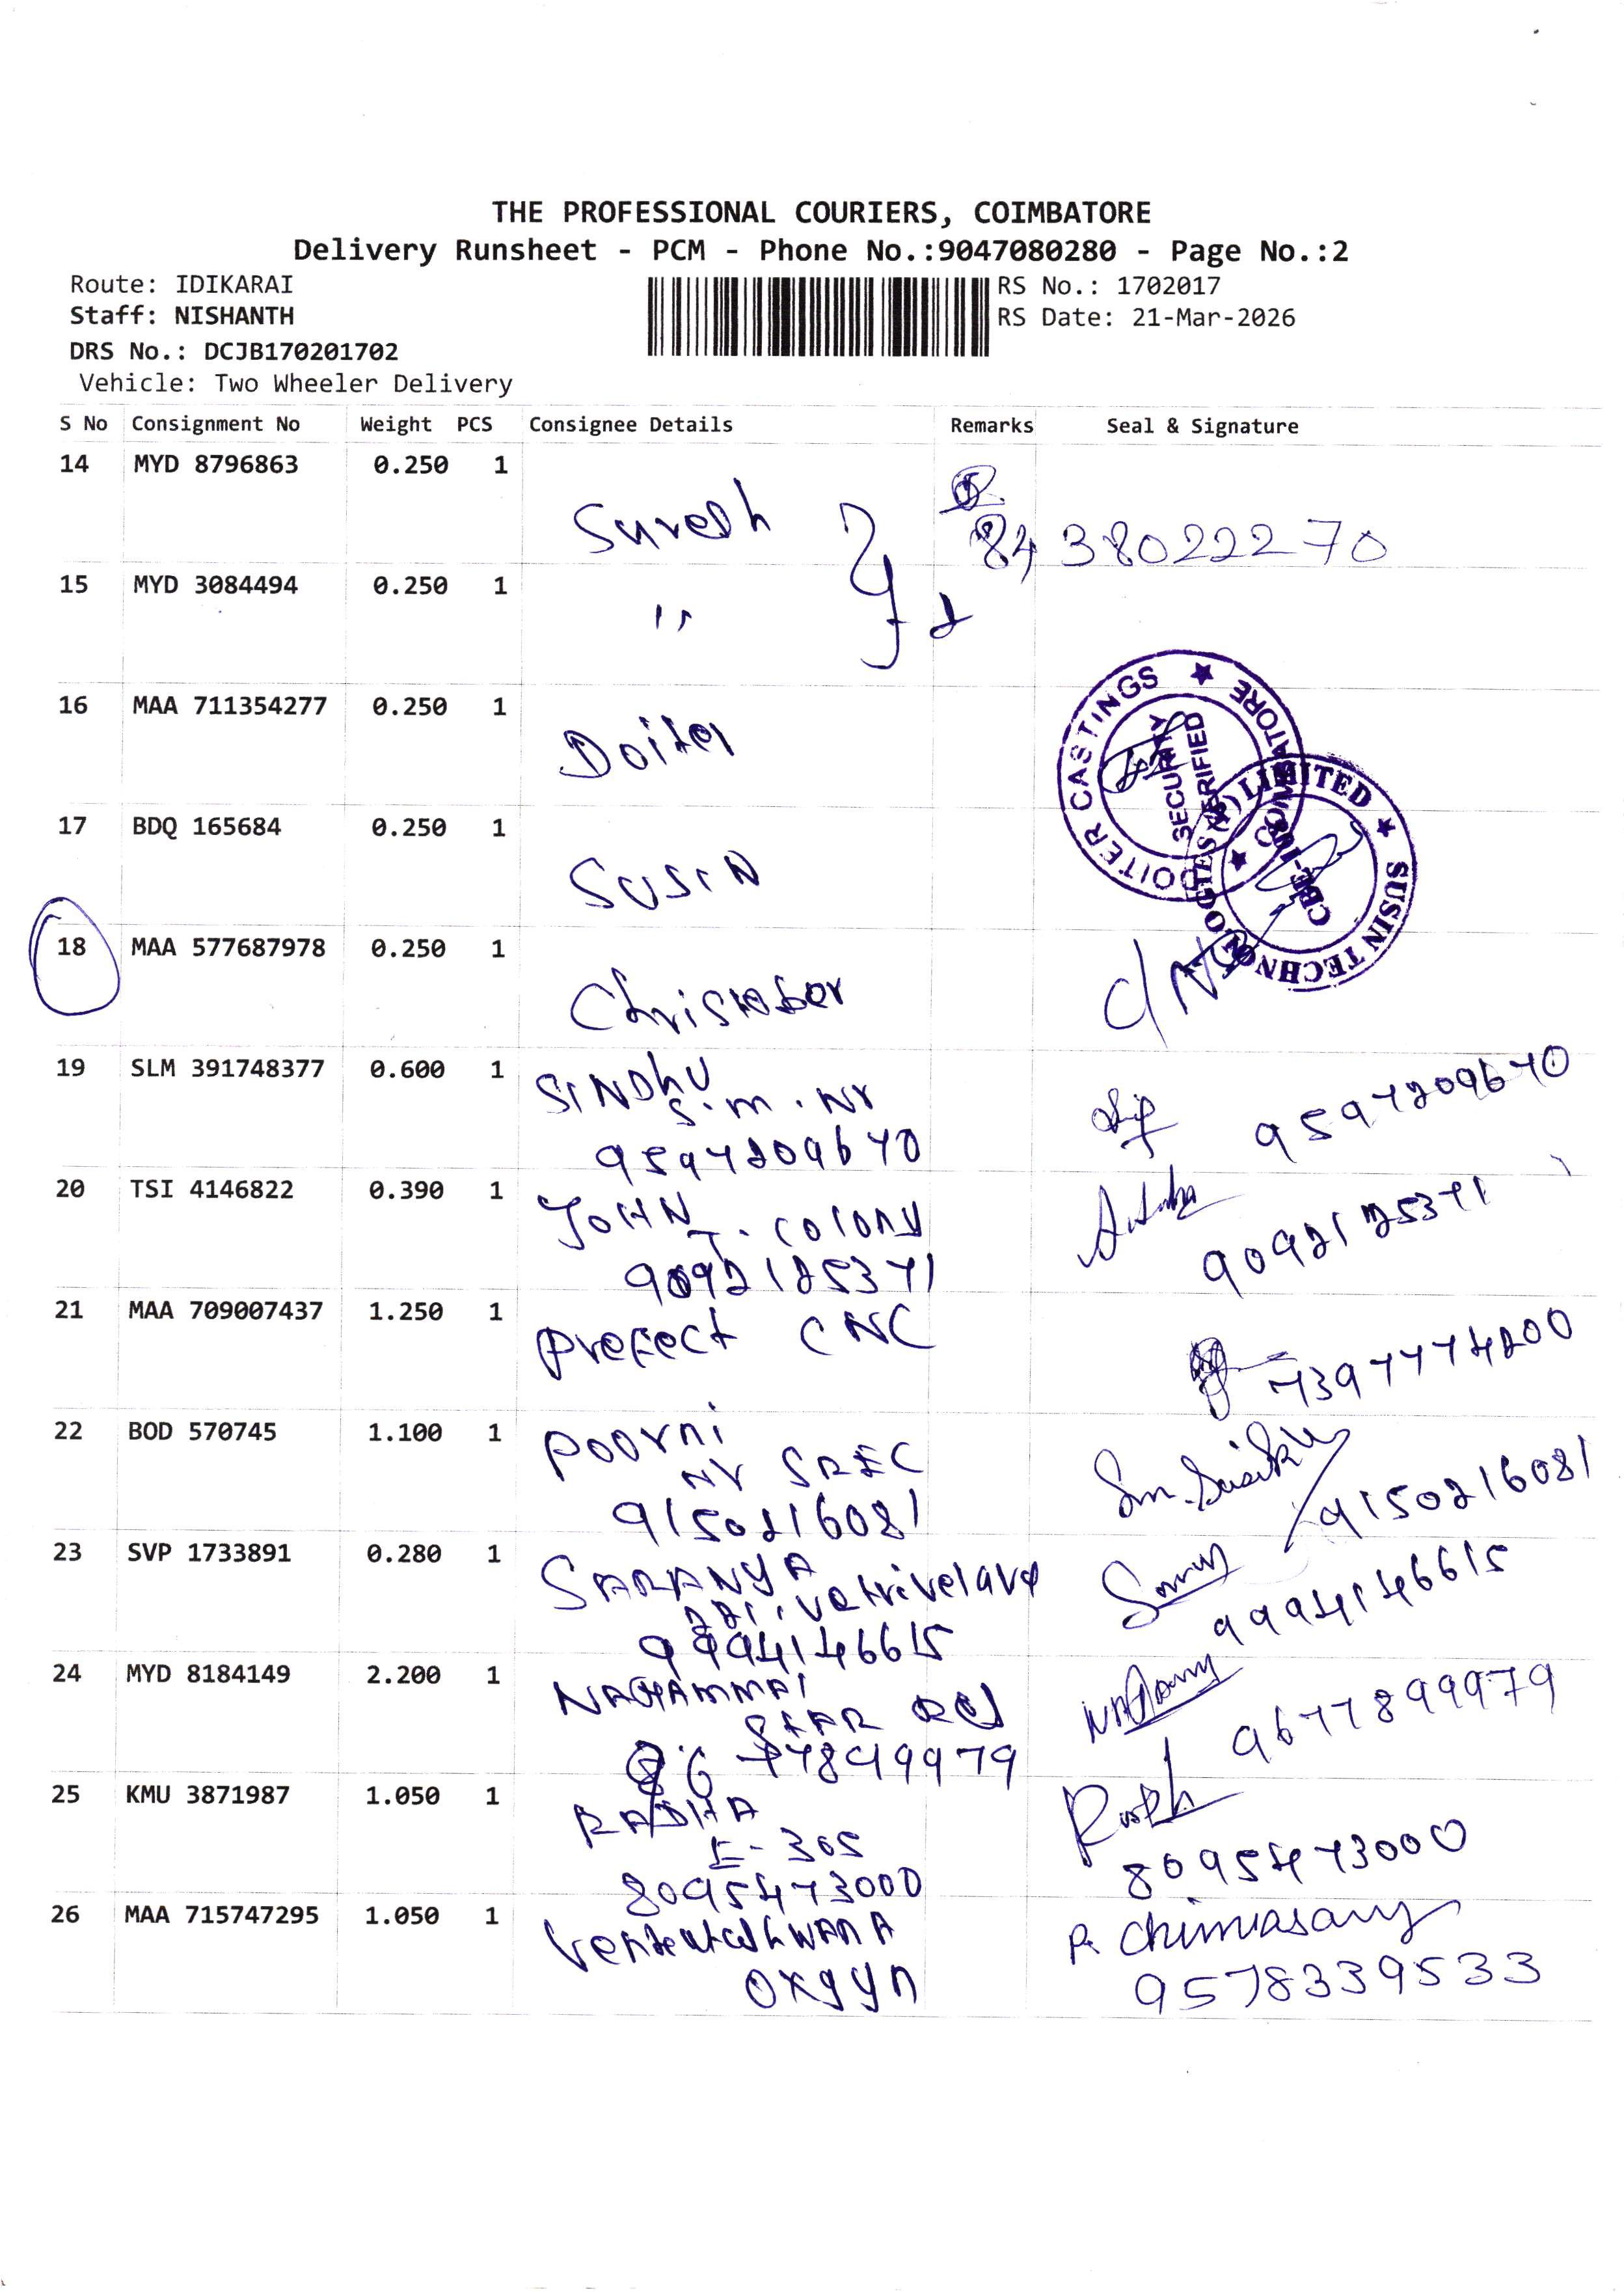 THE PROFESSIONAL COURIERS, COIMBATORE
Delivery Runsheet - PCM - Phone No.:9047080280 - Page No.:2
Route: IDIKARAI
RS No.: 1702017
Staff: NISHANTH
RS Date: 21-Mar-2026
DRS No.: DCJB170201702
Vehicle: Two Wheeler Delivery
S No Consignment No Weight PCS Consignee Details Remarks Seal & Signature
14 MYD 8796863 0.250 1
Suresh
8438022270
15 MYD 3084494 0.250 1
"
16 MAA 711354277 0.250 1
Doiter
DOITER CASTINGS ★ COIMBATORE ★
SECURITY
VERIFIED
17 BDQ 165684 0.250 1
SUSIN
SUSIN TECHNOLOGIES (P) LIMITED ★
18 MAA 577687978 0.250 1
19 SLM 391748377 0.600 1
SINDHU
S.M. NR
9597209670
9597209670
20 TSI 4146822 0.390 1
JOHN
T. COLONY
9092125371
9092125371
21 MAA 709007437 1.250 1
Prefect CNC
7397774200
22 BOD 570745 1.100 1
Poorni
NR SREC
9150216081
9150216081
23 SVP 1733891 0.280 1
SARANYA
9994146615
9994146615
24 MYD 8184149 2.200 1
NAGAMMAI
9677899979
25 KMU 3871987 1.050 1
RADHA
E-305
8095473000
8095473000
26 MAA 715747295 1.050 1
oxgyn
9578339533